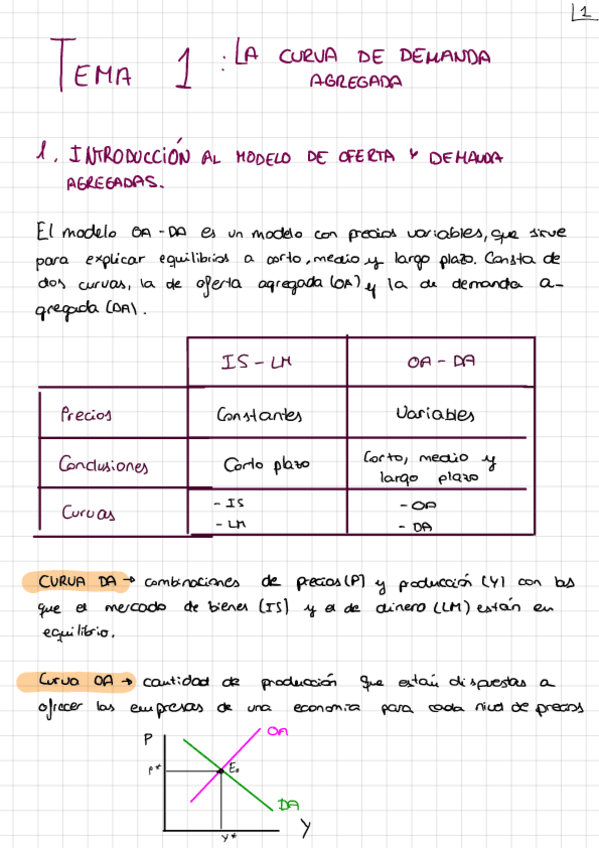 1
TEMA 1: LA CURVA DE DEMANDA
AGREGADA
1. INTRODUCCIÓN AL MODELO DE OFERTA Y DEMANDA
AGREGADAS.
El modelo OA-DA es un modelo con precios variables, que sirve
para explicar equilibrios a corto, medio y largo plazo. Consta de
dos curvas, la de oferta agregada (OA) y la de demanda a-
gregada (DA).
IS-LM OA-DA
Precios Constantes Variables
Conclusiones Corto plazo Corto, medio y
largo plazo
Curvas - IS - OA
- LM - DA
CURVA DA → combinaciones de precios (P) y producción (Y) con las
que el mercado de bienes (IS) y el de dinero (LM) están en
equilibrio.
Curva OA → cantidad de producción que están dispuestas a
ofrecer las empresas de una economía para cada nivel de precios
P OA
P* E₀
DA
Y* Y